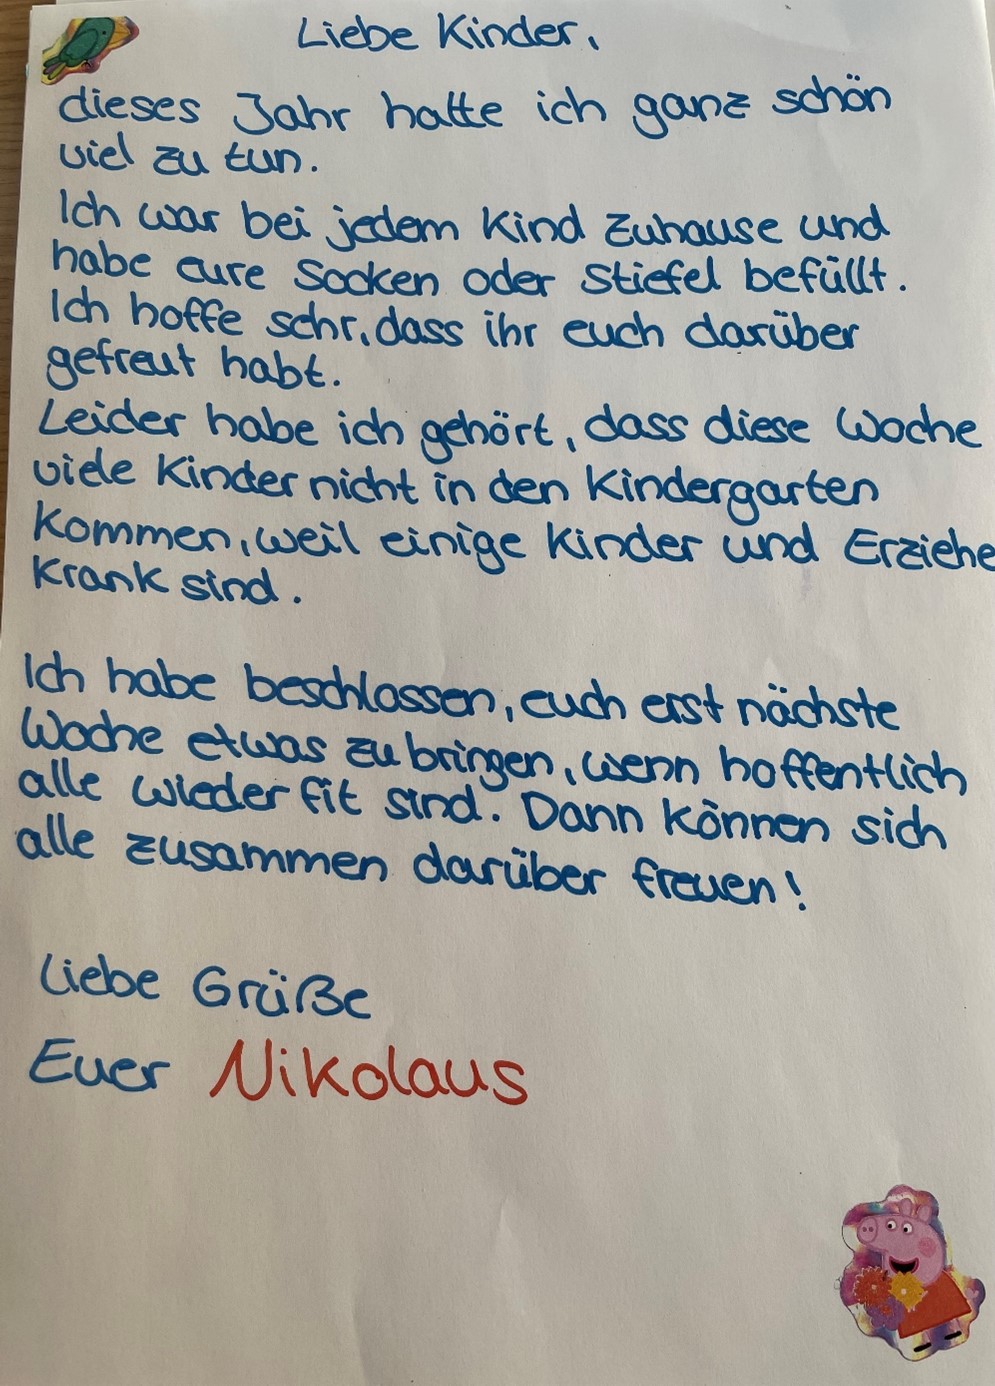 Liebe Kinder,
dieses Jahr hatte ich ganz schön
viel zu tun.
Ich war bei jedem Kind Zuhause und
habe eure Socken oder Stiefel befüllt.
Ich hoffe sehr, dass ihr euch darüber
gefreut habt.
Leider habe ich gehört, dass diese Woche
viele Kinder nicht in den Kindergarten
kommen, weil einige Kinder und Erziehe
krank sind.
Ich habe beschlossen, euch erst nächste
Woche etwas zu bringen, wenn hoffentlich
alle wieder fit sind. Dann können sich
alle zusammen darüber freuen!
Liebe Grüße
Euer Nikolaus